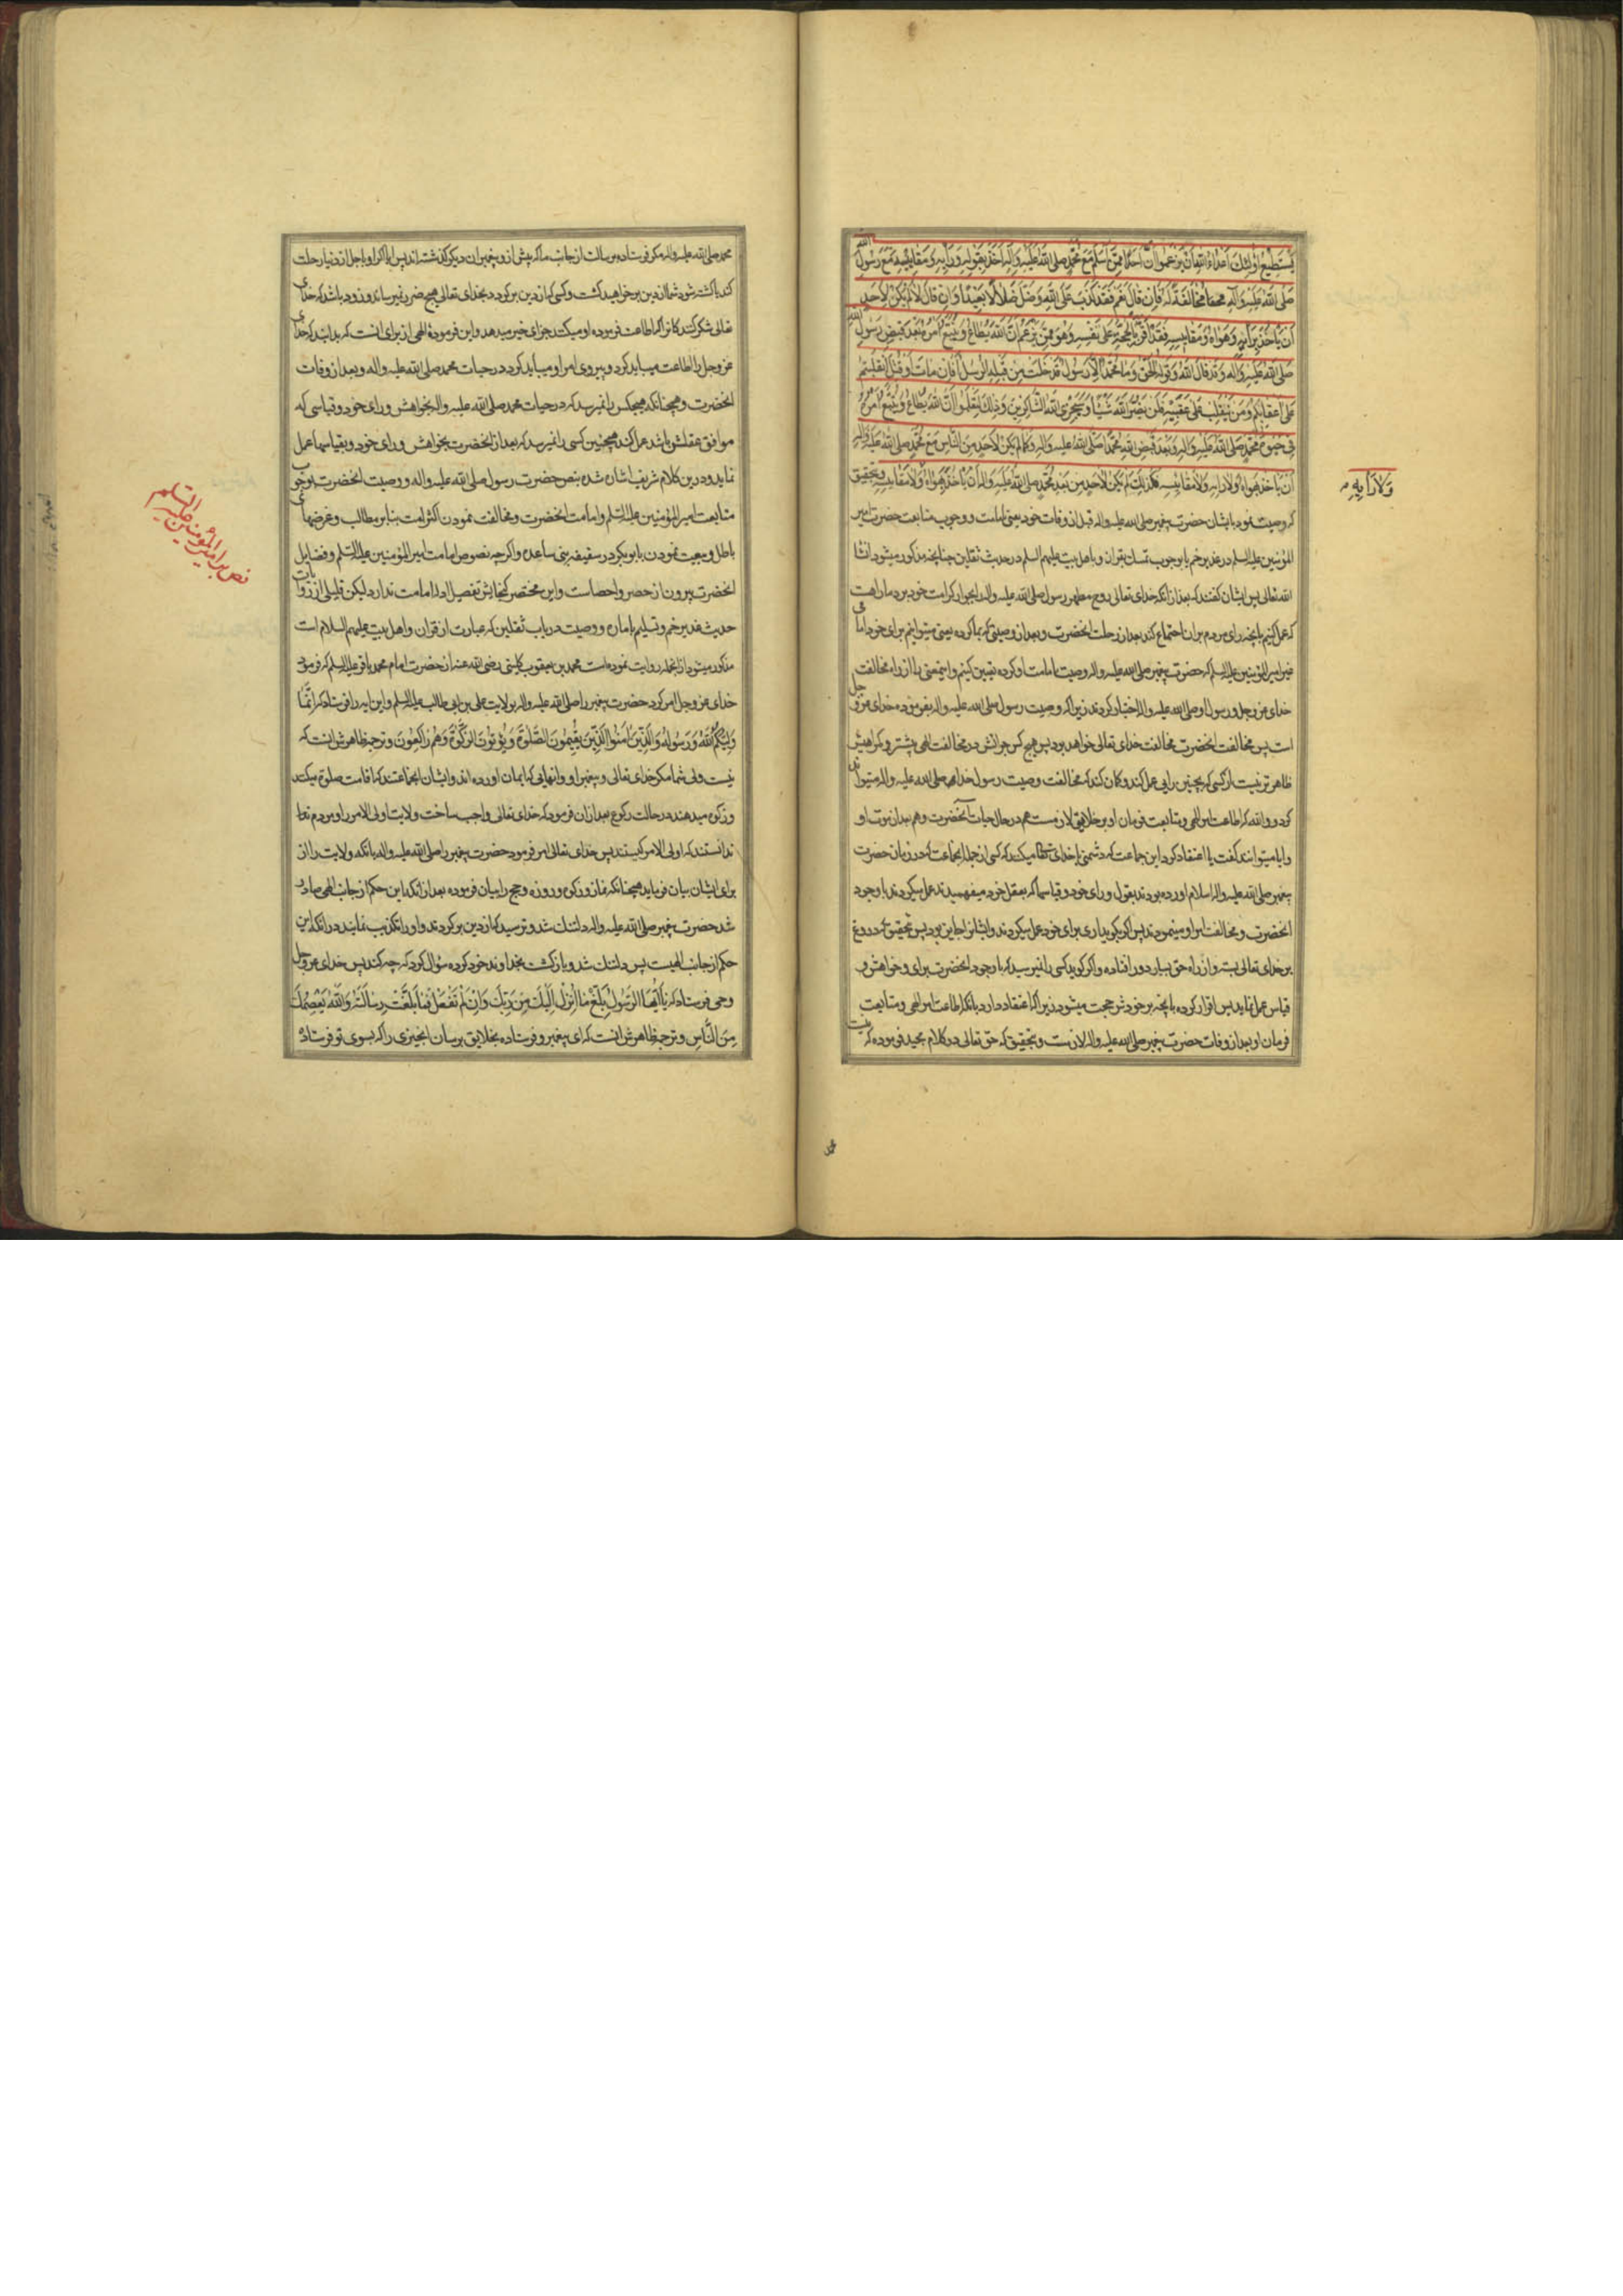 يستطيع اولئك اعداء الله ان يزعموا ان احدا ممن اسلم مع محمد صلى الله عليه واله اخذ بقوله ورايه ومقاييسه مع رسول الله
صلى الله عليه وآله مخالفة له فان قال نعم فقد كذب على الله وضل ضلالا بعيدا وان قال لا لم يكن لاحد
ان ياخذ برايه وهواه ومقاييسه فقد اقر بالحجة على نفسه وهو ممن يزعم ان الله يطاع ويتبع امره بعد قبض رسول الله
صلى الله عليه وآله وقد قال الله وقوله الحق وما محمد الا رسول قد خلت من قبله الرسل افان مات او قتل انقلبتم
على اعقابكم ومن ينقلب على عقبيه فلن يضر الله شيئا وسيجزي الله الشاكرين وذلك لتعلموا ان الله يطاع ويتبع امره
في حيوة محمد صلى الله عليه واله وبعد قبض الله محمدا صلى الله عليه واله وكما لم يكن لاحد من الناس مع محمد صلى الله عليه واله
ان ياخذ بهواه ولا رايه ولا مقاييسه فكذلك لم يكن لاحد من بعد محمد صلى الله عليه واله ان ياخذ بهواه ولا مقاييسه وتحقيق
ولا رايه
كه وصيت نمود بايشان حضرت پيغمبر صلى الله عليه واله قبل از وفات خود يعنى امامت ووجوب متابعت حضرت امير
المؤمنين عليه السلم در غدير خم يا بوجوب تمسك بقران وباهل بيت عليهم السلم در حديث ثقلين چنانچه مذكور ميشود انشا
الله تعالى پس ايشان گفتند كه بعد از انكه خداى تعالى روح مطهر رسول صلى الله عليه واله را بجوار كرامت خود برد ما را هست
كه عمل كنيم بانچه راى مردم بران اجتماع كند بعد از رحلت انحضرت وبعد از وصيتى كه بما كرده يعنى ميتوانيم براى خود امامى
غير امير المؤمنين عليه السلم كه حضرت پيغمبر صلى الله عليه واله وصيت بامامت او كرده تعيين كنيم واينمعنى را از راه مخالفت
خداى عز وجل ورسول او صلى الله عليه واله اختيار كردند زيرا كه وصيت رسول صلى الله عليه واله بفرموده خداى عز وجل
است پس مخالفت انحضرت مخالفت خداى تعالى خواهد بود پس هيچ كس جراتش در مخالفت الهى بيشتر وگمراهيش
ظاهرتر نيست از كسى كه بچنين رايى عمل كند وگمان كند كه مخالفت وصيت رسول خدا صلى الله عليه واله ميتواند
كرد ووالله كه اطاعت امر الهى ومتابعت فرمان او بر خلايق لازمست هم در حال حيات آنحضرت وهم بعد از موت او
وايا ميتوانند گفت يا اعتقاد كرد اين جماعت كه دشمنى با خداى تعالى ميكنند كه كسى از جمله انجماعت كه در زمان حضرت
پيغمبر صلى الله عليه واله اسلام اورده بودند بقول وراى خود وقياسها كه بعقل خود ميفهميدند عمل ميكردند با وجود
انحضرت ومخالفت امر او مينمودند پس اگر بگويد ارى براى خود عمل ميكردند وايشانرا جايز بود پس بتحقيق كه دروغ
بر خداى تعالى بسته واز راه حق بسيار دور افتاده واگر گويد كسى را نميرسيد كه با وجود انحضرت براى وخواهش و
قياس عمل نمايد پس اقرار كرده بانچه بر خودش حجت ميشود زيرا كه اعتقاد دارد بانكه اطاعت امر الهى ومتابعت
فرمان او بعد از وفات حضرت پيغمبر صلى الله عليه واله لازمست وبتحقيق كه حق تعالى در كلام مجيد فرموده كه نيست
محمد
محمد صلى الله عليه واله مگر فرستاده برسالت از جانب ما كه پيش از و پيغمبران ديگر گذشته اند پس ايا اگر او باجل از دنيا رحلت
كند يا كشته شود شما از دين بر خواهيد گشت وكسى كه از دين برگردد بخداى تعالى هيچ ضررى نميرساند وزود باشد كه خداى
تعالى شكر كنندكانرا كه اطاعت فرموده او ميكنند جزاى خير ميدهد واين فرموده الهى از براى انست كه بدانيد كه خداى
عز وجل را اطاعت ميبايد كرد وپيروى امر او ميبايد كرد در حيات محمد صلى الله عليه واله وبعد از وفات
انحضرت وهمچنانكه هيچكس را نميرسد كه در حيات محمد صلى الله عليه واله بخواهش وراى خود وقياسى كه
موافق عقلش باشد عمل كند همچنين كسى را نميرسد كه بعد از انحضرت بخواهش وراى خود وبقياسها عمل
نمايد ودرين كلام شريف اشاره شده بنص حضرت رسول صلى الله عليه واله ووصيت انحضرت بوجوب
متابعت امير المؤمنين عليه السلم وامامت انحضرت ومخالفت نمودن اكثر امت بنابر مطالب وغرضهاى
باطل وبيعت نمودن با ابو بكر در سقيفه بنى ساعده واگرچه نصوص امامت امير المؤمنين عليه السلم وفضايل
نص بر امير المؤمنين عليه السلم
انحضرت بيرون از حصر واحصاست واين مختصر گنجايش تفصيل ادله امامت ندارد ليكن قليلى از روايات
حديث غدير خم وتسليم باماره ووصيت در باب ثقلين كه عبارت از قران واهل بيت عليهم السلام است
مذكور ميشود از انجمله روايت نموده است محمد بن يعقوب كلينى رضى الله عنه از حضرت امام محمد باقر عليه السلم كه فرمود
خداى عز وجل امر كرد حضرت پيغمبر را صلى الله عليه واله بولايت على بن ابى طالب عليه السلم واين ايه را فرستاد كه انما
وليكم الله ورسوله والذين امنوا الذين يقيمون الصلوة ويؤتون الزكوة وهم راكعون وترجمۀ ظاهرش انست كه
نيست ولى شما مگر خداى تعالى وپيغمبر او وانهايى كه ايمان اورده اند وايشان انجماعتند كه اقامت صلوة ميكنند
وزكوة ميدهند در حالت ركوع بعد ازان فرمود كه خداى تعالى واجب ساخت ولايت اولى الامر را ومردم
ندانستند كه اولى الامر كيستند پس خداى تعالى امر فرمود حضرت پيغمبر را صلى الله عليه واله بانكه ولايت را از
براى ايشان بيان فرمايد همچنانكه نماز وزكوة وروزه وحج را بيان فرموده بعد از انكه اين حكم از جانب الهى صادر
شد حضرت پيغمبر صلى الله عليه واله دلتنك شد وترسيد كه از دين برگردند واو را تكذيب نمايند در انكه اين
حكم از جانب الهيست پس دلتنك شد وبازگشت بخداوند خود كرده سؤال كرد كه چه كند پس خداى عز وجل
وحى فرستاد كه يا ايها الرسول بلغ ما انزل اليك من ربك وان لم تفعل فما بلغت رسالته والله يعصمك
من الناس وترجمۀ ظاهرش انست كه اى پيغمبر وفرستاده بخلايق برسان انچيزى را كه بسوى تو فرستاده